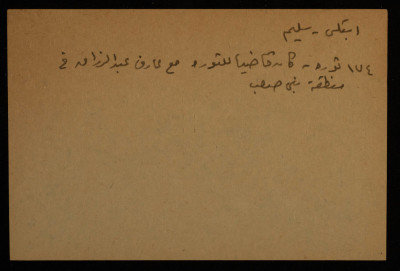 ابقلي - سليم
١٧٤ ثوره - كان قاضيا للثوره مع عارف عبد الرزاق في
منطقة بني صعب